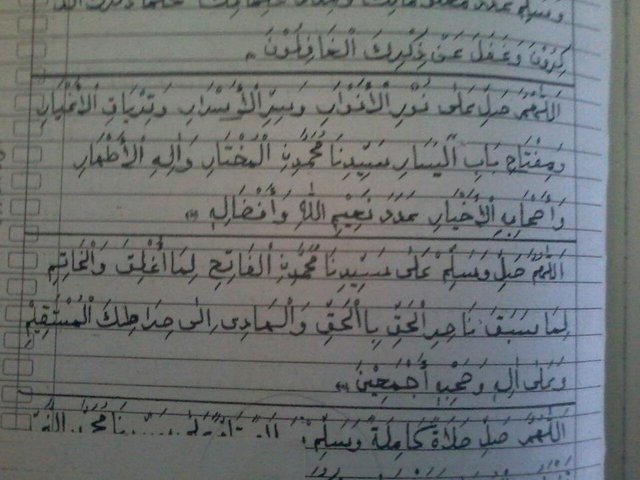 كِرُوْنَ وَغَفَلَ عَنْ ذِكْرِكَ الْغَافِلُوْنَ
اَللّٰهُمَّ صَلِّ عَلٰى نُوْرِ الْأَنْوَارِ وَسِرِّ الْأَسْرَارِ وَتِرْيَاقِ الْأَغْيَارِ
وَمِفْتَاحِ بَابِ الْيَسَارِ سَيِّدِنَا مُحَمَّدِنِ الْمُخْتَارِ وَاٰلِهِ الْأَطْهَارِ
وَأَصْحَابِهِ الْأَخْيَارِ عَدَدَ نَعِيْمِ اللّٰهِ وَأَفْضَالِهِ
اَللّٰهُمَّ صَلِّ وَسَلِّمْ عَلٰى سَيِّدِنَا مُحَمَّدِنِ الْفَاتِحِ لِمَا أُغْلِقَ وَالْخَاتِمِ
لِمَا سَبَقَ نَاصِرِ الْحَقِّ بِاالْحَقِّ وَالْهَادِى اِلٰى صِرَاطِكَ الْمُسْتَقِيْمِ
وَعَلٰى اٰلِهِ وَصَحْبِهِ أَجْمَعِيْنَ
اَللّٰهُمَّ صَلِّ صَلَاةً كَامِلَةً وَسَلِّمْ